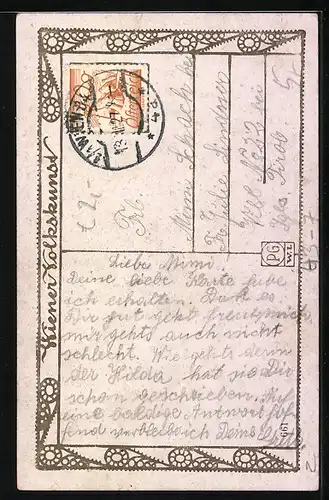 Wiener Volkskunst
WIEN
Frl.
Mimi
Zell N° 32 bei
Tirol
PG
W.I.
43-7
Liebe Mimi.
Deine liebe Karte habe
ich erhalten. Daß es
Dir gut geht freut mich,
mir gehts auch nicht
schlecht. Wie gehts denn
der Hilda, hat sie Dir
schon geschrieben. Auf
eine baldige Antwort hof-
fend verbleibe ich Deine
661